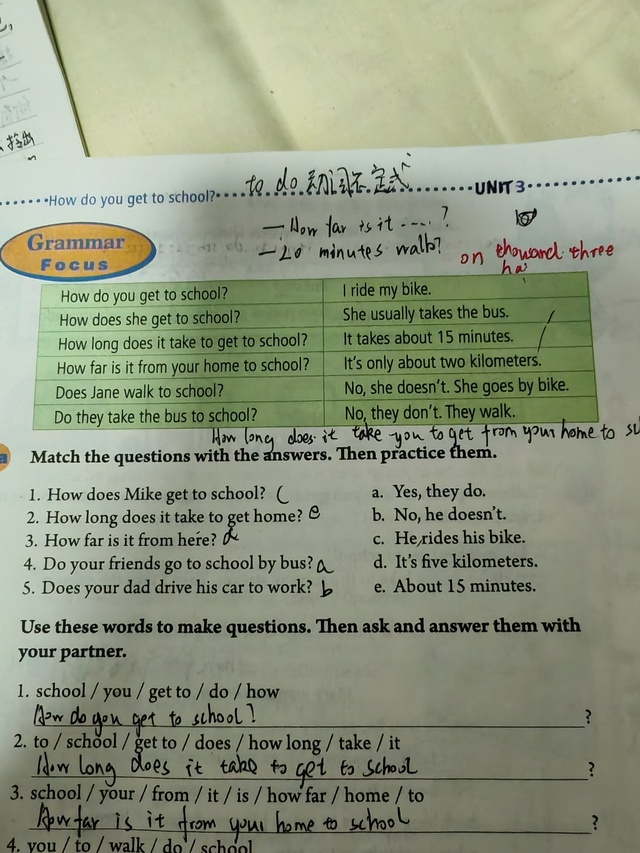 to do 动词不定式
How do you get to school?
UNIT 3
— How far is it ....?
— 20 minutes walk?
on thowand three
ha
Grammar
Focus
How do you get to school? I ride my bike.
How does she get to school? She usually takes the bus.
How long does it take to get to school? It takes about 15 minutes.
How far is it from your home to school? It's only about two kilometers.
Does Jane walk to school? No, she doesn't. She goes by bike.
Do they take the bus to school? No, they don't. They walk.
How long does it take you to get from your home to
a Match the questions with the answers. Then practice them.
1. How does Mike get to school? C a. Yes, they do.
2. How long does it take to get home? e b. No, he doesn't.
3. How far is it from here? d c. He rides his bike.
4. Do your friends go to school by bus? a d. It's five kilometers.
5. Does your dad drive his car to work? b e. About 15 minutes.
Use these words to make questions. Then ask and answer them with
your partner.
1. school / you / get to / do / how
How do you get to school? ?
2. to / school / get to / does / how long / take / it
How long does it take to get to school ?
3. school / your / from / it / is / how far / home / to
How far is it from your home to school ?
4. you / to / walk / do / school